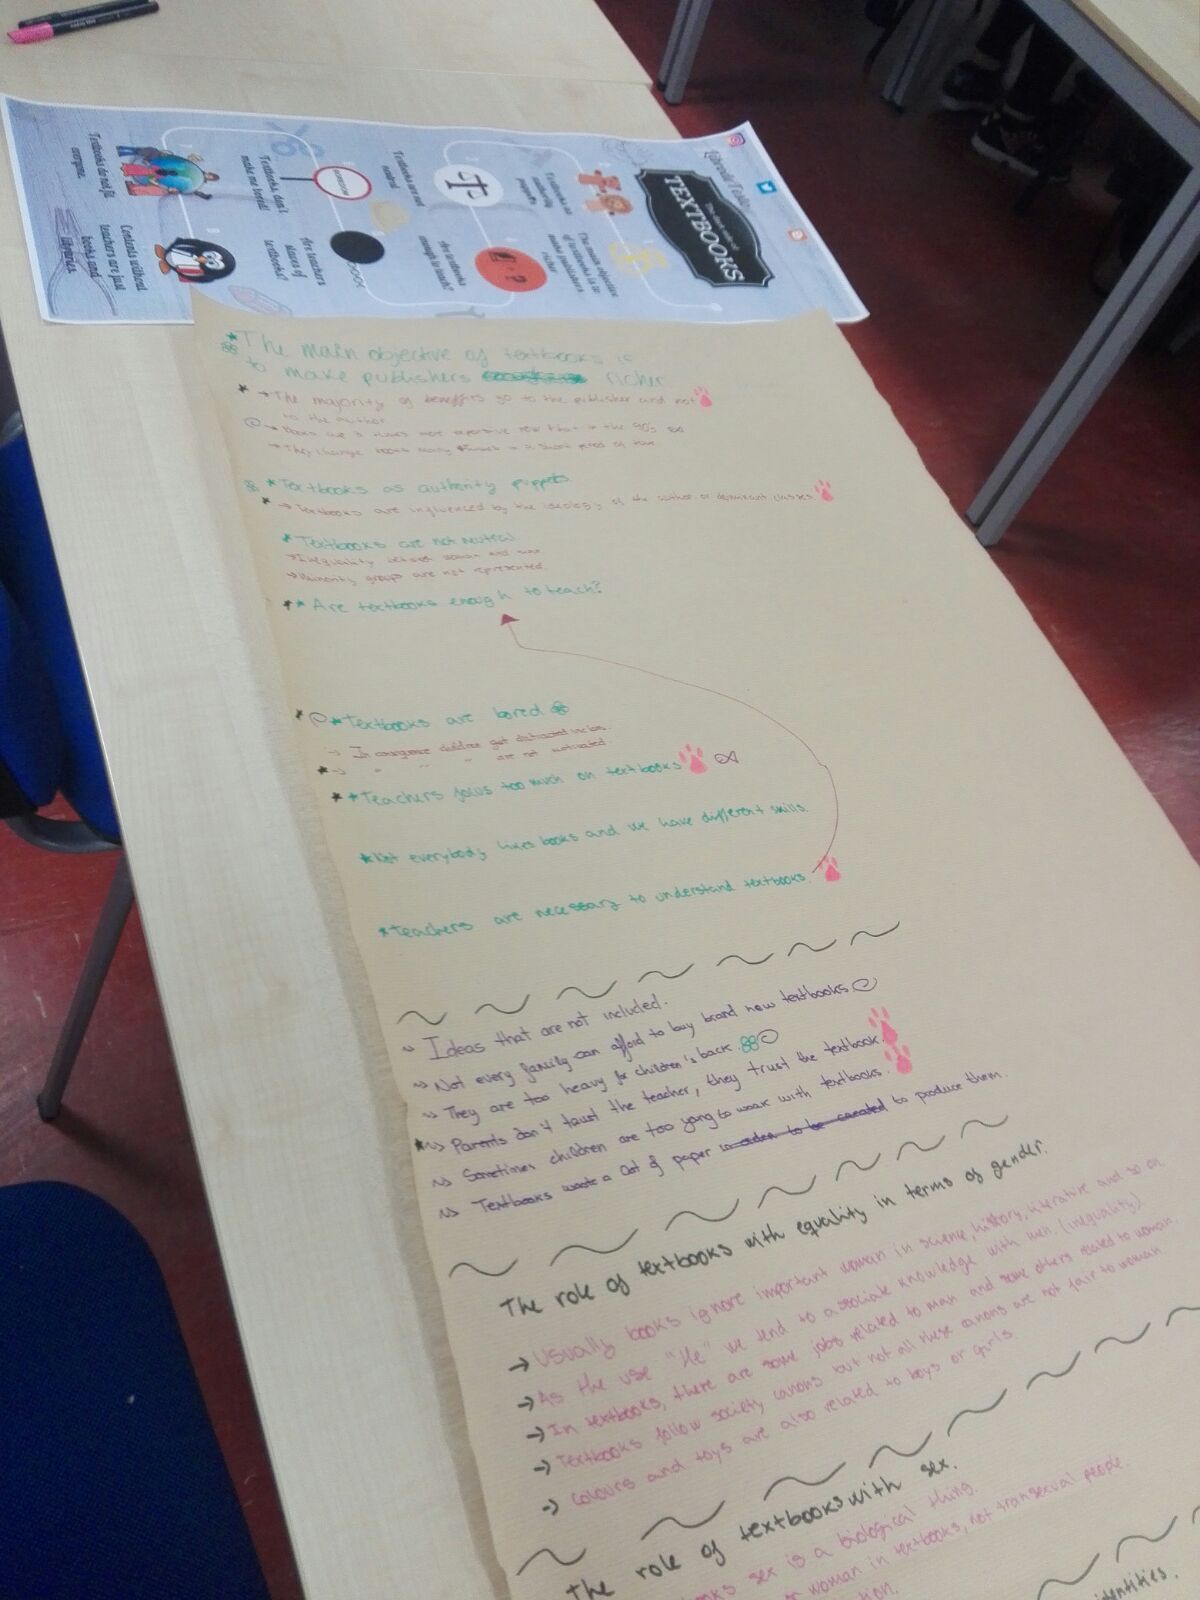 The dark side of
TEXTBOOKS
The main objective
of textbooks is to
make publishers
richer
Textbooks as
authority
puppets
Textbooks are not
neutral
Are textbooks
enough to teach?
Textbooks, don't
make me bored!
Are teachers
slaves of
textbooks?
Textbooks do not fit
everyone.
Contents without
teachers are just
books and
libraries.
The main objective of textbooks is
to make publishers richer
→ The majority of benefits go to the publisher and not
to the author
→ Books are more expensive now that in the 90's
→ They change books many times in a short period of time
Textbooks as authority puppets.
→ Textbooks are influenced by the ideology of the author or dominant classes.
Textbooks are not neutral
→ Inequality between woman and man
→ Minority groups are not represented.
Are textbooks enough to teach?
Textbooks are bored
→ children get distracted
→ " " " are not motivated.
Teachers focus too much on textbooks
Not everybody likes books and we have different skills.
Teachers are necessary to understand textbooks.
Ideas that are not included.
Not every family can afford to buy brand new textbooks
They are too heavy for children's back.
Parents don't trust the teacher, they trust the textbook.
Sometimes children are too yong to work with textbooks.
Textbooks waste a lot of paper in order to be created to produce them.
The role of textbooks with equality in terms of gender.
→ Usually books ignore important woman in science, history, literature and so on
→ As the use "He" we tend to associate knowledge with men. (inequality)
→ In textbooks, there are some jobs related to man and some others related to woman
→ Textbooks follow society canons but not all these canons are not fair to woman
→ Colours and toys are also related to boys or girls.
The role of textbooks with sex.
sex is a biological thing.
or woman in textbooks, not transexual people.
identities.